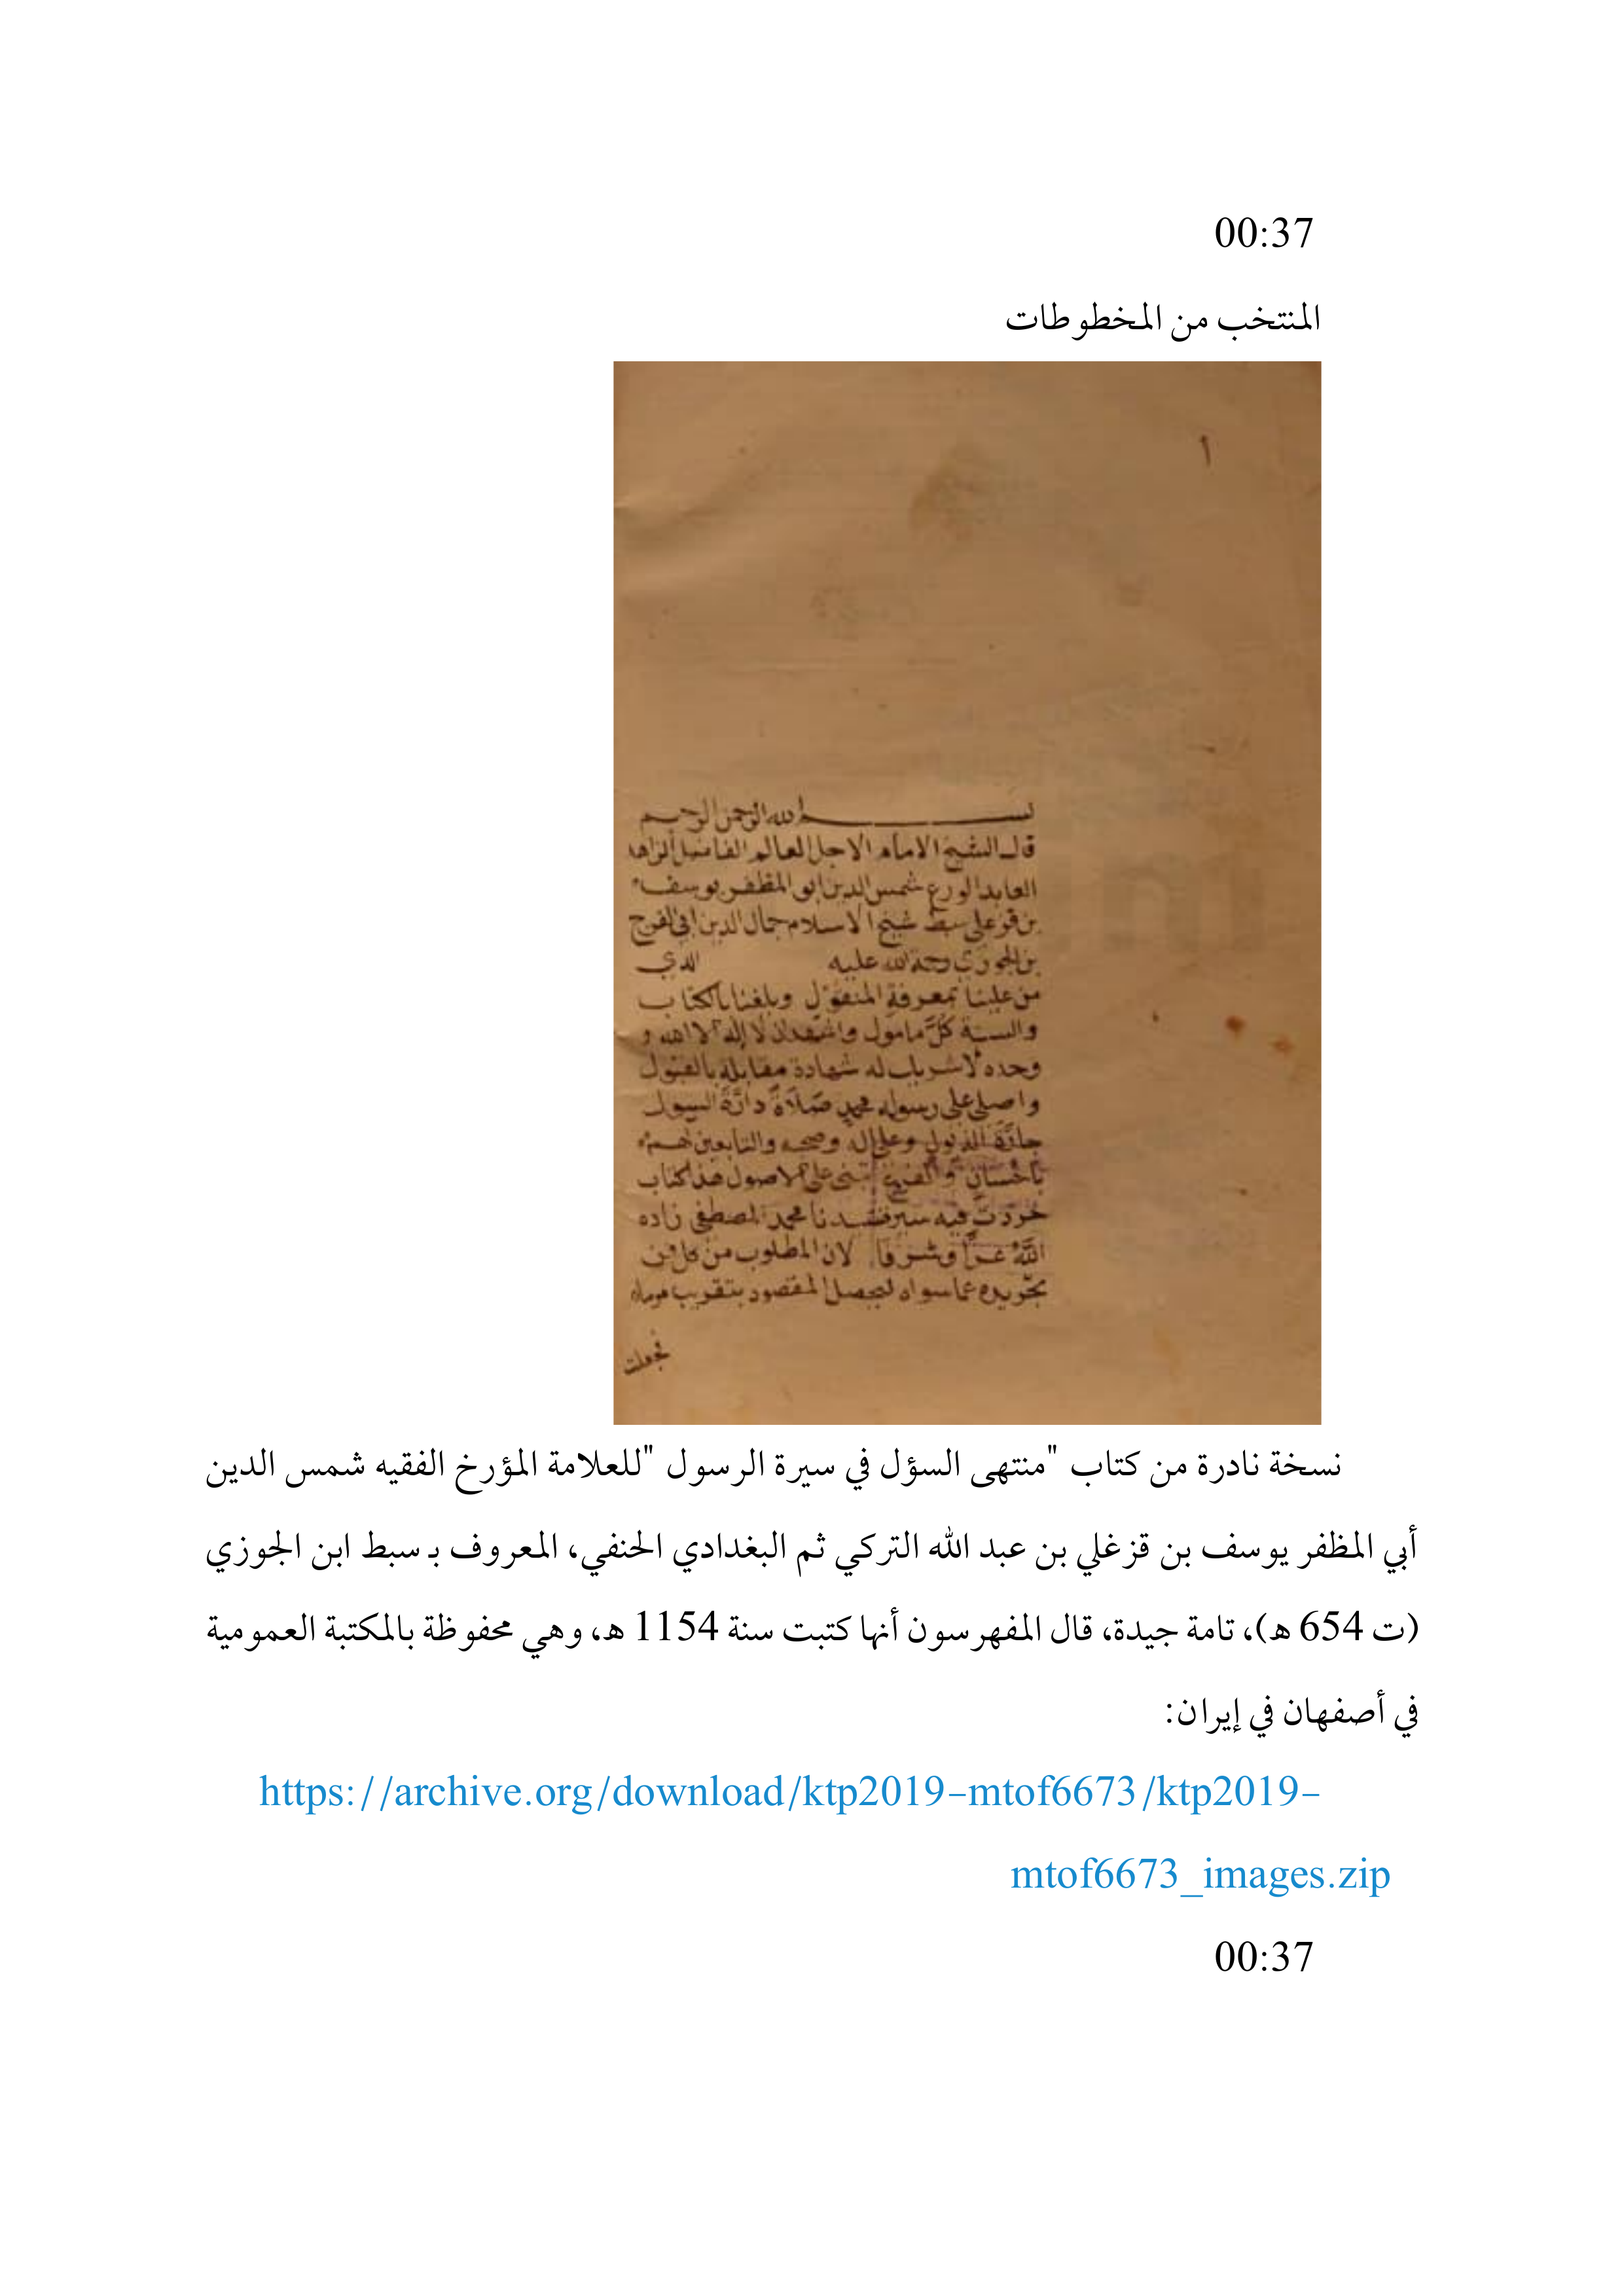 00:37
المنتخب من المخطوطات
١
بســــــم الله الرحمن الرحيم
قال الشيخ الامام الاجل العالم الفاضل الزاهد
العابد الورع شمس الدين ابو المظفر يوسف
بن قزعلي سبط شيخ الاسلام جمال الدين ابي الفرج
بن الجوزي رحمة الله عليه الذي
من علينا بمعرفة المنقول وبلغنا بالكتاب
والسنة كلَّ مامول واشهد ان لا إله الا الله و
وحده لا شريك له شهادة مقابلة بالقبول
واصلي على رسوله محمد صَلاَةً دارَّةَ السيول
جارَّةَ الذيول وعلى اله وصحبه والتابعين لهم
باحْسان تبنى على الاصول هذا كتاب
جردت فيه سير سيدنا محمد المصطفى زاده
اللَّهُ عزًّا وشرفا لان المطلوب من كل فن
تجريده عما سواه ليحصل المقصود بتقريب
فجعلت
نسخة نادرة من كتاب "منتهى السؤل في سيرة الرسول "للعلامة المؤرخ الفقيه شمس الدين
أبي المظفر يوسف بن قزغلي بن عبد الله التركي ثم البغدادي الحنفي، المعروف بـ سبط ابن الجوزي
(ت 654 هـ)، تامة جيدة، قال المفهرسون أنها كتبت سنة 1154 هـ، وهي محفوظة بالمكتبة العمومية
في أصفهان في إيران:
https://archive.org/download/ktp2019-mtof6673/ktp2019-
mtof6673_images.zip
00:37